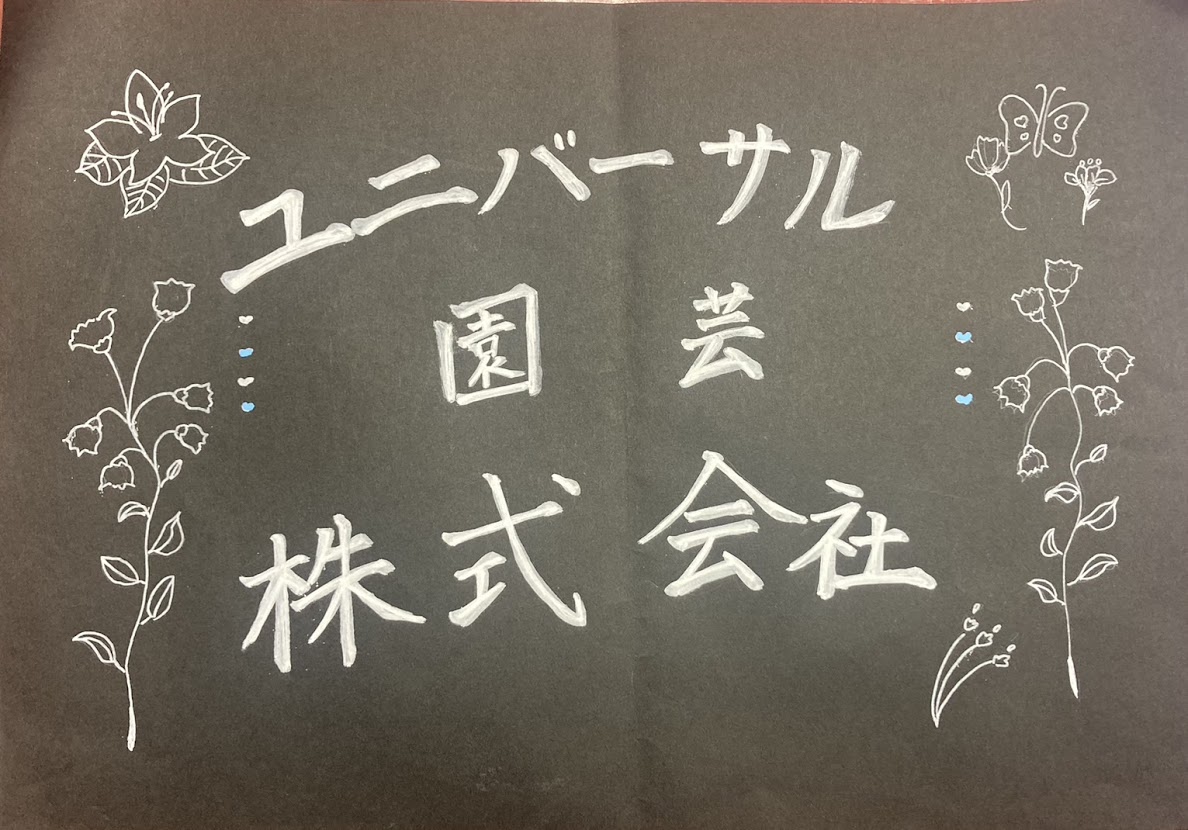 ユニバーサル
園芸
株式会社